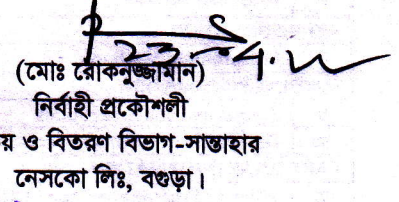 23.4.
(মোঃ রোকনুজ্জামান)
নির্বাহী প্রকৌশলী
য় ও বিতরণ বিভাগ-সান্তাহার
নেসকো লিঃ, বগুড়া।